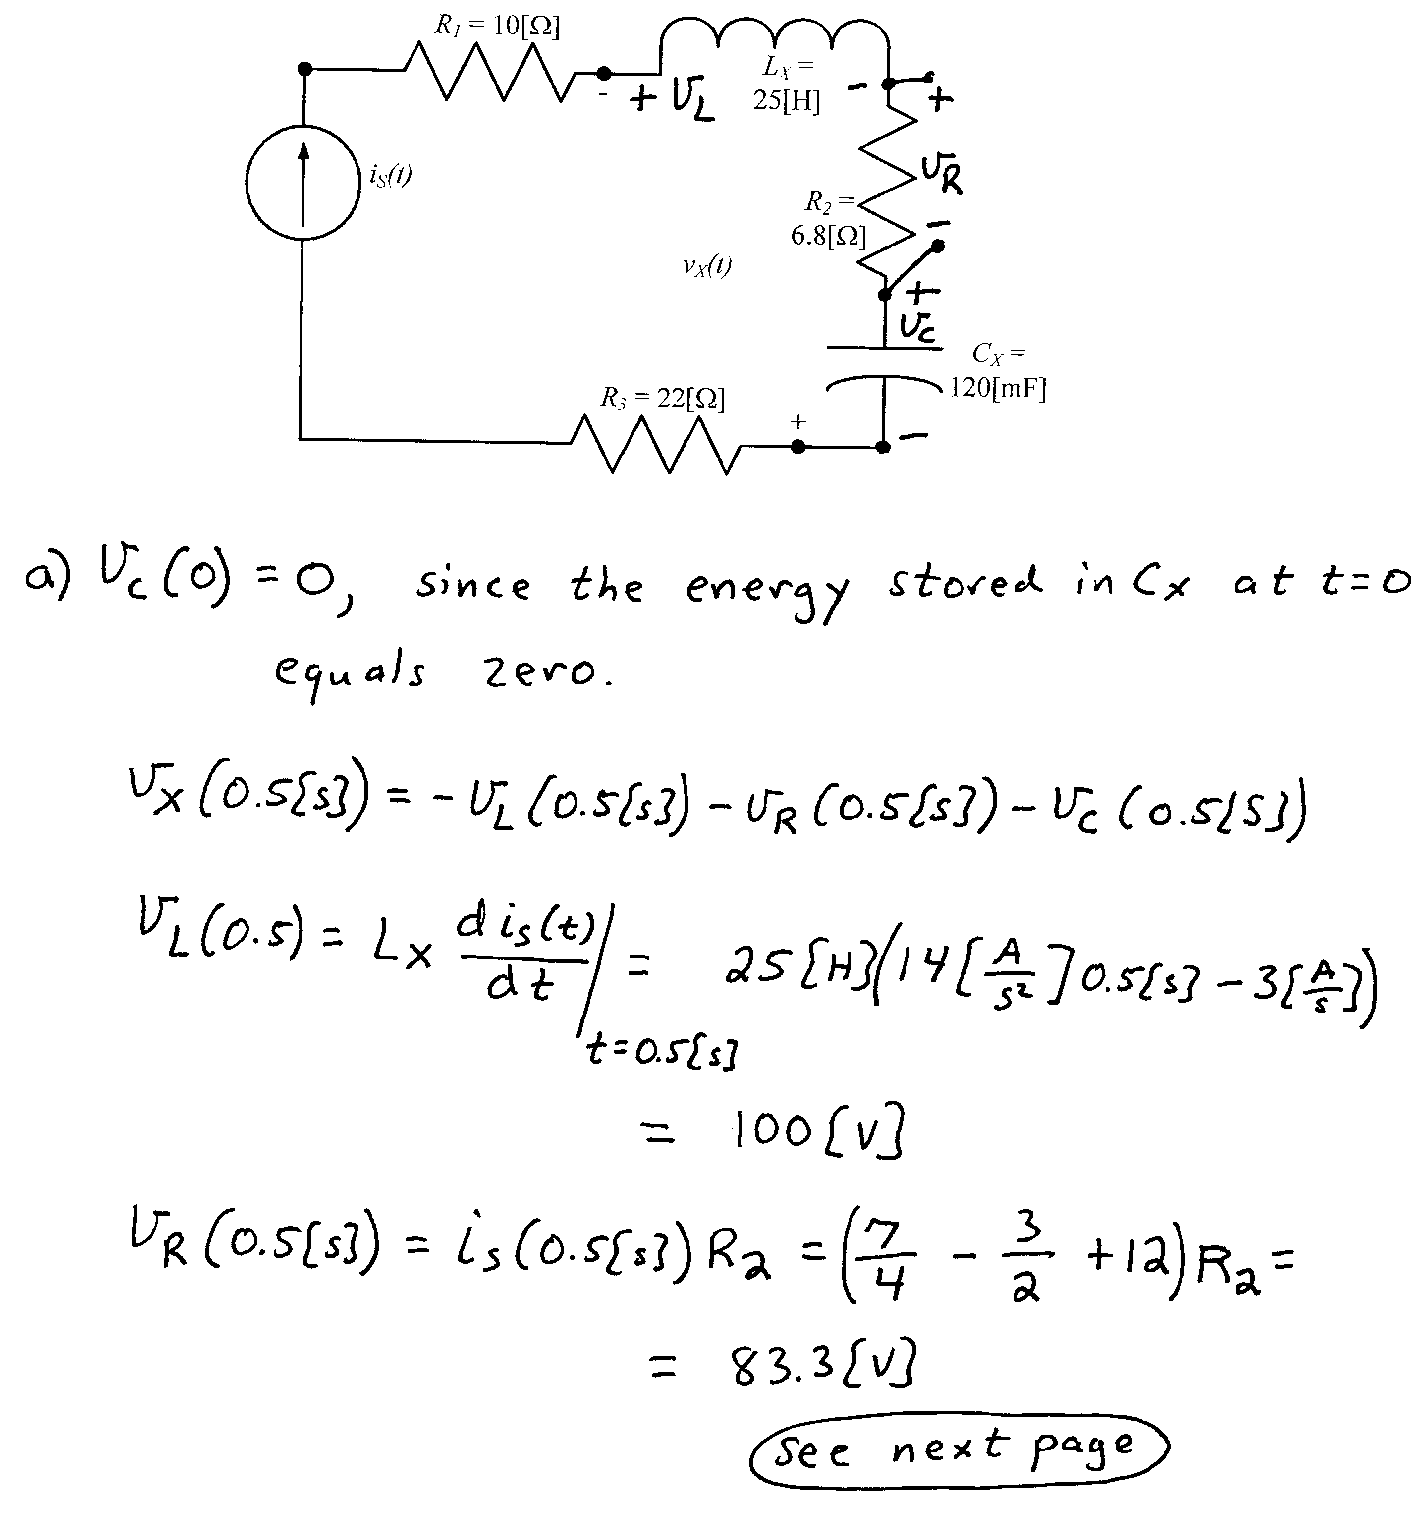 R₁ = 10[Ω]
Lₓ =
25[H]
- + v_L - +
i_S(t)
v_R
R₂ =
6.8[Ω]
-
v_X(t)
+
v_C
C_X =
120[mF]
R₃ = 22[Ω]
+
-
a) v_c(0) = 0, since the energy stored in Cx at t=0
equals zero.
v_X(0.5[s]) = - v_L(0.5[s]) - v_R(0.5[s]) - v_C(0.5[s])
v_L(0.5) = L_X d i_S(t)/dt |t=0.5[s] = 25[H](14[A/s²]0.5[s] - 3[A/s])
= 100[V]
v_R(0.5[s]) = i_S(0.5[s]) R₂ = (7/4 - 3/2 + 12) R₂ =
= 83.3[V]
See next page